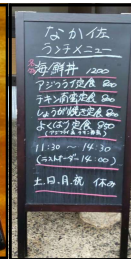 なか佐
ランチメニュー
海鮮丼 1200
アジフライ定食 800
チキン南蛮定食 800
しょうが焼き定食 800
よくばり定食 850
11:30 〜 14:30
(ラストオーダー 14:00)
土.日.祝 休み